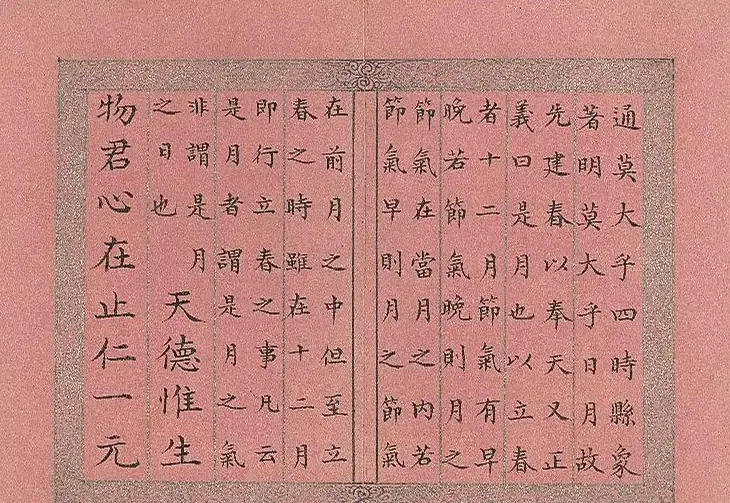 通莫大乎四時縣象
著明莫大乎日月故
先建春以奉天又正
義曰是月也以立春
者十二月節氣有早
晚若節氣晚則月之
節氣在當月之內若
節氣早則月之節氣
在前月之中但至立
春之時雖在十二月
即行立春之事凡云
是月者謂是月之氣
非謂是月
之日也
天德惟生
物君心在止仁一元